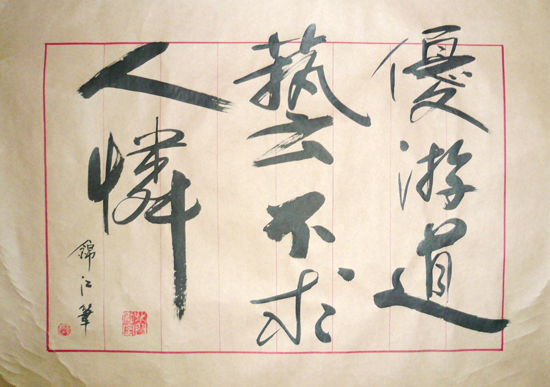 優游道
藝不求
人憐
錦江筆